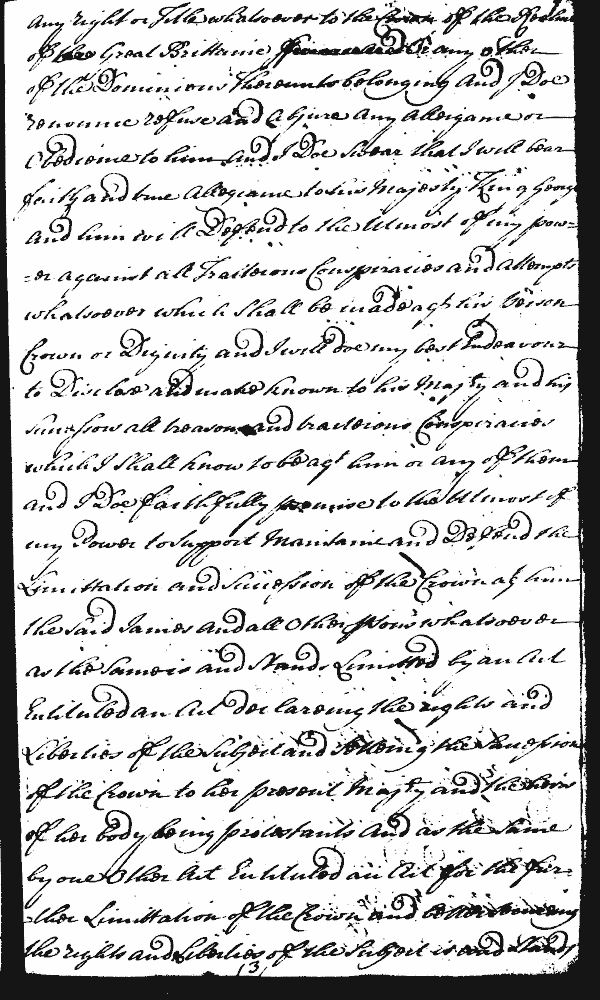 any right or Title whatsoever to the Crown of the Realm
of Great Brittaine or any other
of the Dominions thereunto belonging And I Doe
renounce refuse and Abjure any Allegiance or
Obedience to him And I Doe Swear that I will bear
faith and true Allegiance to his Majesty King George
and him will Defend to the Utmost of my pow=
=er against all Traiterous Conspiracies and attempts
whatsoever which shall be made agt his Person
Crown or Dignity and I will doe my best Endeavour
to Disclose and make known to his Majty and his
successors all treasons and traiterous Conspiracies
which I shall know to be agt him or any of them
and I Doe faithfully promise to the Utmost of
my Power to support Maintaine and Defend the
Limittation and Succession of the Crown agt him
the said James and all Other psons whatsoever
as the same is and Stands Limitted by an Act
Entituled an Act declareing the rights and
Liberties of the Subject and setling the Succession
of the Crown to her present Majty and the heirs
of her body being protestants And as the same
by one Other Act Entituled an Act for the fur=
=ther Limittation of the Crown and better secureing
the rights and Liberties of the Subject is and stands
(3)